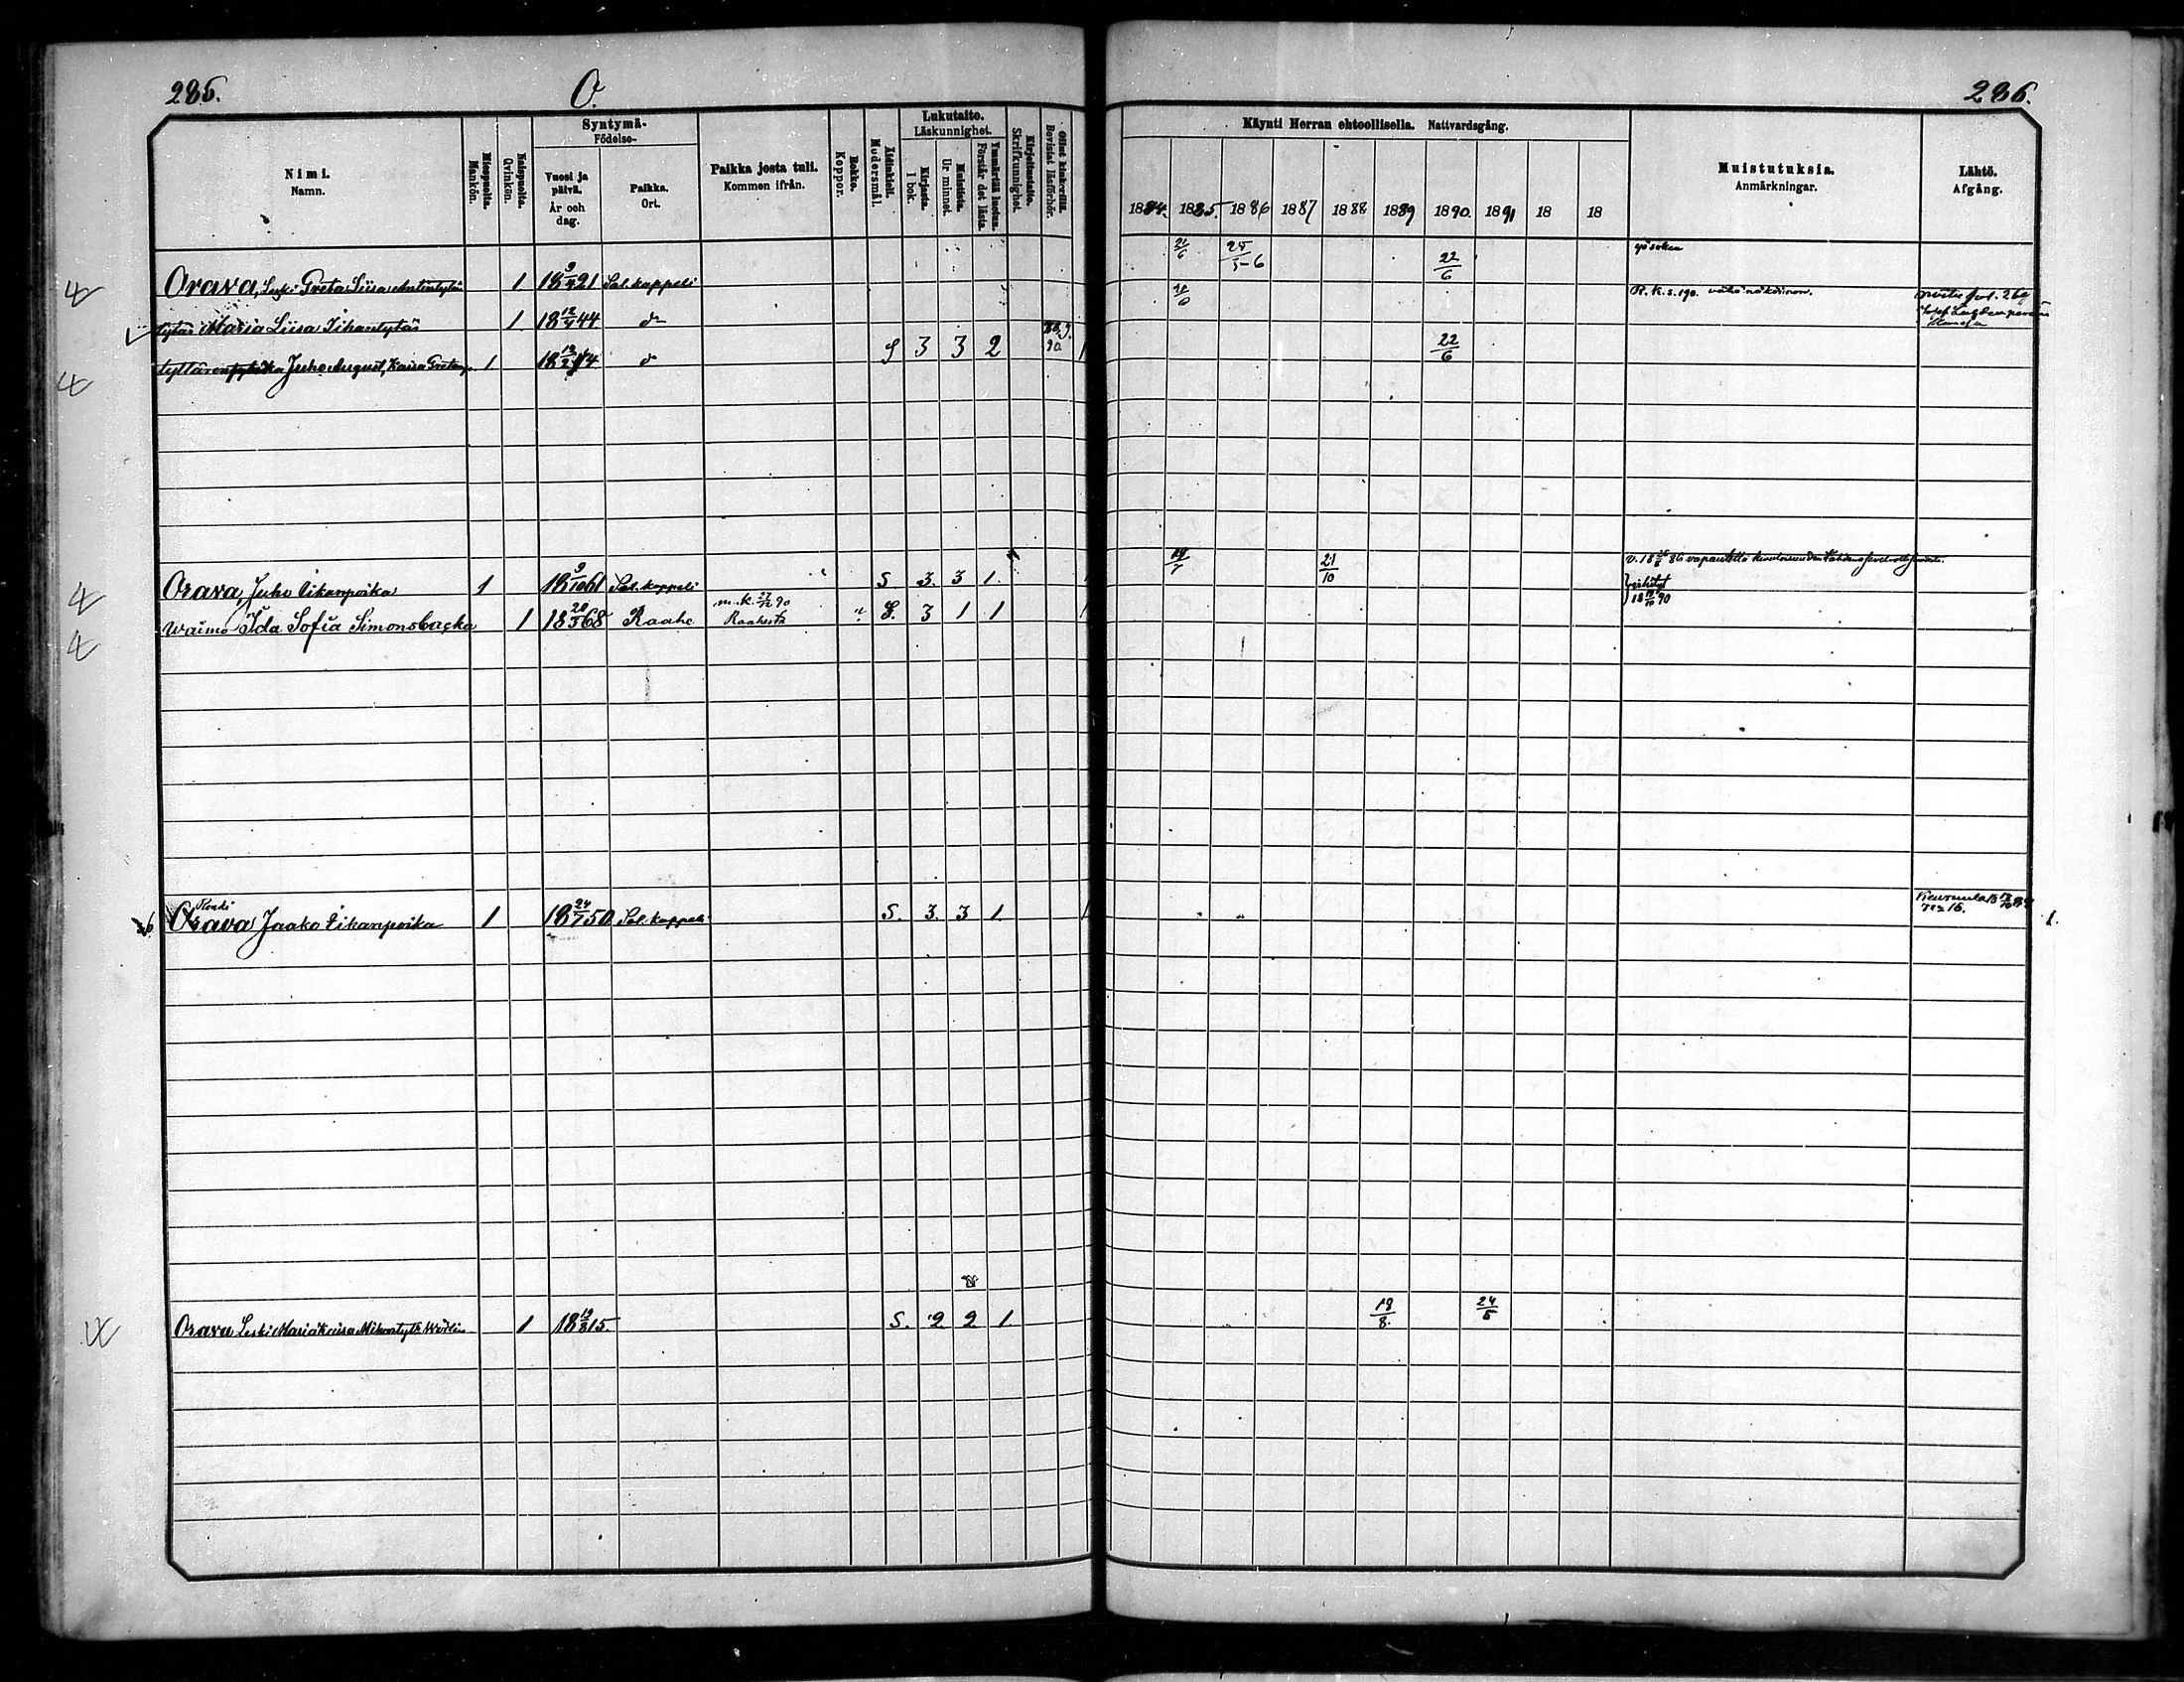 286.
O.
286.
Nimi.
Namn.
Miespuolta.
Mankön.
Naispuolta.
Qvinkön.
Syntymä-
Födelse-
Vuosi ja päivä.
År och dag.
Paikka.
Ort.
Paikka josta tuli.
Kommen ifrån.
Rokko.
Koppor.
Äidinkieli.
Modersmål.
Lukutaito.
Läskunnighet.
Kirjasta.
I bok.
Muistista.
Ur minnet.
Ymmärtää luetun.
Förstår det lästa.
Kirjoitustaito.
Skrifkunnighet.
Ollut kinkerillä.
Bevistat läsförhör.
Käynti Herran ehtoollisella. Nattvardsgång.
1884. 1885. 1886 1887 1888 1889 1890. 1891 18 18
Muistutuksia.
Anmärkningar.
Lähtö.
Afgång.
Orava, Leski Greta Liisa Antintytär 1 18 9/4 21 Sal. kappeli 21/6 25/5-6 22/6
tytär Maria Liisa Iikantytär 1 18 12/4 44 do 21/6 R. K. s. 190.
tyttären Juho August, Kaisa Gretanp. 1 do S 3 3 2 90 1 22/6
Orava, Juho Iikanpoika 1 18 9/10 61 Sal. kappeli S 3 3 1. 1 19/7 21/10
waimo Ida Sofia Simonsbacka 1 18 20/5 68 Raahe m.k. 27/12 90 Raahesta S. 3 1 1 1 vihityt 90
Koski
Orava Jaako Iikanpoika 1 18 24/7 50 Sal. kappeli S. 3. 3 1. 1
No 16.
1.
Orava Leski Maria Kaisa 1 18 19/8 15. S. 2 2 1. 18/8. 24/5